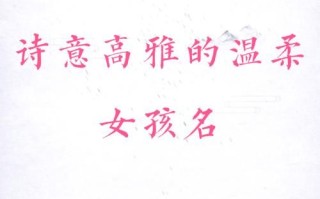 诗意高雅的温柔
女孩名